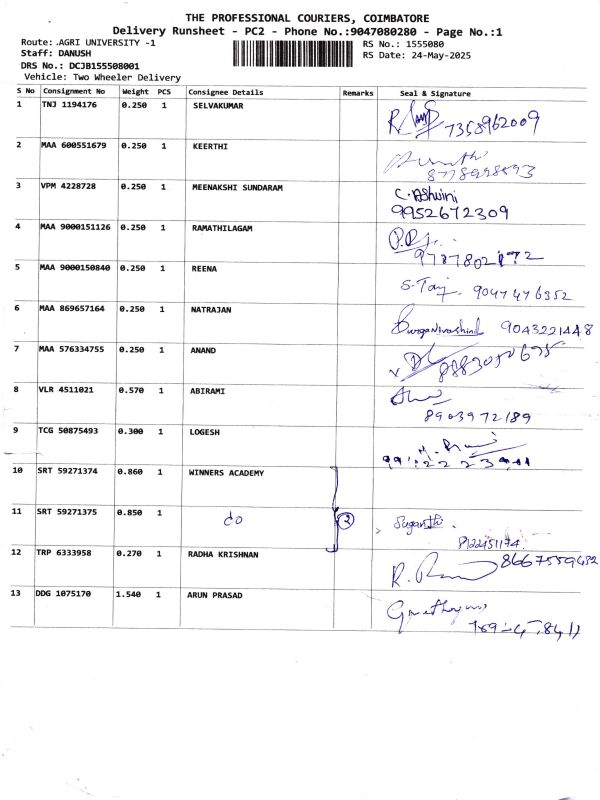 THE PROFESSIONAL COURIERS, COIMBATORE
Delivery Runsheet - PC2 - Phone No.:9047080280 - Page No.:1
Route: .AGRI UNIVERSITY -1
RS No.: 1555080
Staff: DANUSH
RS Date: 24-May-2025
DRS No.: DCJB155508001
Vehicle: Two Wheeler Delivery
S No Consignment No Weight PCS Consignee Details Remarks Seal & Signature
1 TNJ 1194176 0.250 1 SELVAKUMAR 7358962009
2 MAA 600551679 0.250 1 KEERTHI
3 VPM 4228728 0.250 1 MEENAKSHI SUNDARAM C. Ashwini
9952672309
4 MAA 9000151126 0.250 1 RAMATHILAGAM
5 MAA 9000150840 0.250 1 REENA 9047476352
6 MAA 869657164 0.250 1 NATRAJAN 9043221448
7 MAA 576334755 0.250 1 ANAND
8 VLR 4511021 0.570 1 ABIRAMI
8903972189
9 TCG 50875493 0.300 1 LOGESH
10 SRT 59271374 0.860 1 WINNERS ACADEMY
11 SRT 59271375 0.850 1 do 2 Suganthi.
8122451174
12 TRP 6333958 0.270 1 RADHA KRISHNAN
13 DDG 1075170 1.540 1 ARUN PRASAD